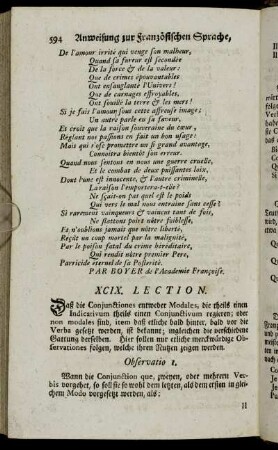 594 Anweisung zur Französischen Sprache,
De l'amour irrité qui venge son malheur,
Quand sa fureur est secondée
De la force & de la valeur:
Que de crimes épouvantables
Ont ensanglanté l'Univers!
Que de carnages effroyables,
Ont souillé la terre & les mers!
Si je fais l'amour sous cette affreuse image;
Un autre parle en sa faveur.
Et croit que la raison souveraine du cœur,
Reglant nos passions en fait un bon usage:
Mais qui s'ose promettre un si grand avantage,
Connoitra bientôt son erreur.
Quand nous sentons en nous une guerre cruelle,
Et le combat de deux puissantes loix,
Dont l'une est innocente, & l'autre criminelle,
La raison l'emportera-t-elle?
Ne sçait-on par quel est le poids
Qui vers le mal nous entraine sans cesse?
Si rarement vainqueurs & vaincus tant de fois,
Ne flattons point nôtre foiblesse,
Et n'oublions jamais que nôtre liberté,
Reçût un coup mortel par la malignité,
Par le poison fatal du crime héréditaire;
Qui rendit nôtre premier Pere,
Parricide éternel de sa Posterité.
PAR BOYER de l'Academie Françoise.
XCIX. LECTION.
Daß die Conjunctiones entweder Modales, die theils einen
Indicativum theils einen Conjunctivum regieren; oder
non modales sind, item daß etliche bald hinter, bald vor die
Verba gesetzt werden, ist bekannt; ingleichen die verschiedene
Gattung derselben. Hier sollen nur etliche merckwürdige Ob-
servationes folgen, welche ihren Nutzen zeigen werden.
Observatio 1.
Wann die Conjunction que, zweyen, oder mehrern Ver-
bis vorgehet, so soll sie so wohl dem letzten, als dem ersten in glei-
chem Modo vorgesetzt werden, als:
Il